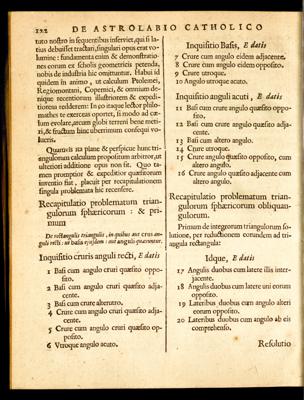 122 DE ASTROLABIO CATHOLICO
tuto nostro in sequentibus inserviet, qui si la-
tius debuisset tractari, singulari opus erat vo-
lumine: fundamenta enim & demonstratio-
nes eorum ex scholis geometris petenda,
nobis de industria hic omittuntur. Habui id
quidem in animo, ut calculum Ptolemei,
Regiomontani, Copernici, & omnium de-
nique recentiorum illustriorem & expedi-
tiorem redderem: In eo itaque lector philo-
mathes te exerceas oportet, si modo ad cæ-
lum evolare, atrum globi terreni bene meti-
ri, & fructum hinc uberrimum consequi vo-
lueris.
Quamvis ita plane & perspicue hunc tri-
angulorum calculum propositum arbitror, ut
ulteriori additione opus non sit. Quo ta-
men promptior & expeditior quæsitorum
inventio fiat, placuit per recapitulationem
singula problemata hic recensere.
Recapitulatio problematum trian-
gulorum sphæricorum: & pri-
mum
De rectangulis triangulis, in quibus aut crus an-
guli recti: aut basis ejusdem: aut angulus quæruntur.
Inquisitio cruris anguli recti, E datis
1 Basi cum angulo cruri quæsito oppo-
sito.
2 Basi cum angulo cruri quæsito adja-
cente.
3 Basi cum crure alterutro.
4 Crure cum angulo cruri quæsito adja-
cente.
5 Crure cum angulo cruri quæsito op-
posito.
6 Utroque angulo acuto.
Inquisitio Basis, E datis
7 Crure cum angulo eidem adjacente.
8 Crure cum angulo eidem opposito.
9 Crure utroque.
10 Angulo utroque acuto.
Inquisitio anguli acuti, E datis
11 Basi cum crure angulo quæsito oppo-
sito.
12 Basi cum crure angulo quæsito adja-
cente.
13 Basi cum altero angulo.
14 Crure utroque.
15 Crure angulo quæsito opposito, cum
altero angulo.
16 Crure angulo quæsito adjacente cum
altero angulo.
Recapitulatio problematum trian-
gulorum sphæricorum obliquan-
gulorum.
Primum de integrorum triangulorum so-
lutione, per reductionem eorundem ad tri-
angula rectangula:
Idque, E datis
17 Angulis duobus cum latere illis inter-
jacente.
18 Angulis duobus cum latere uni eorum
opposito.
19 Lateribus duobus cum angulo alteri
eorum opposito.
20 Lateribus duobus cum angulo ab eis
comprehenso.
Resolutio